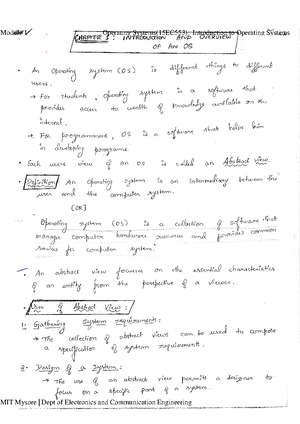 Module V Operating Systems(15EC553)- Introduction to Operating Systems
CHAPTER 1: INTRODUCTION AND OVERVIEW
OF An OS
• An Operating system (OS) is different things to different
users.
→ For students, operating system is a software that
provides access to wealth of knowledge available on the
internet.
→ For programmers, OS is a software that helps him
in developing programs.
• Each users view of an OS is called an Abstract View.
• Definition An Operating system is an Intermediary between the
user and the computer system.
(OR)
Operating system (OS) is a collection of software that
manages computer hardware resources and provides common
services for computer system.
• An abstract view focuses on the essential characteristics
of an entity from the perspective of a viewer.
• Uses of Abstract View:
1. Gathering system requirements:
→ The collection of abstract views can be used to compose
a specification of system requirements.
2. Design of a System:
→ the use of an abstract view permits a designer to
focus on a specific part of a system.
MIT Mysore | Dept of Electronics and Communication Engineering